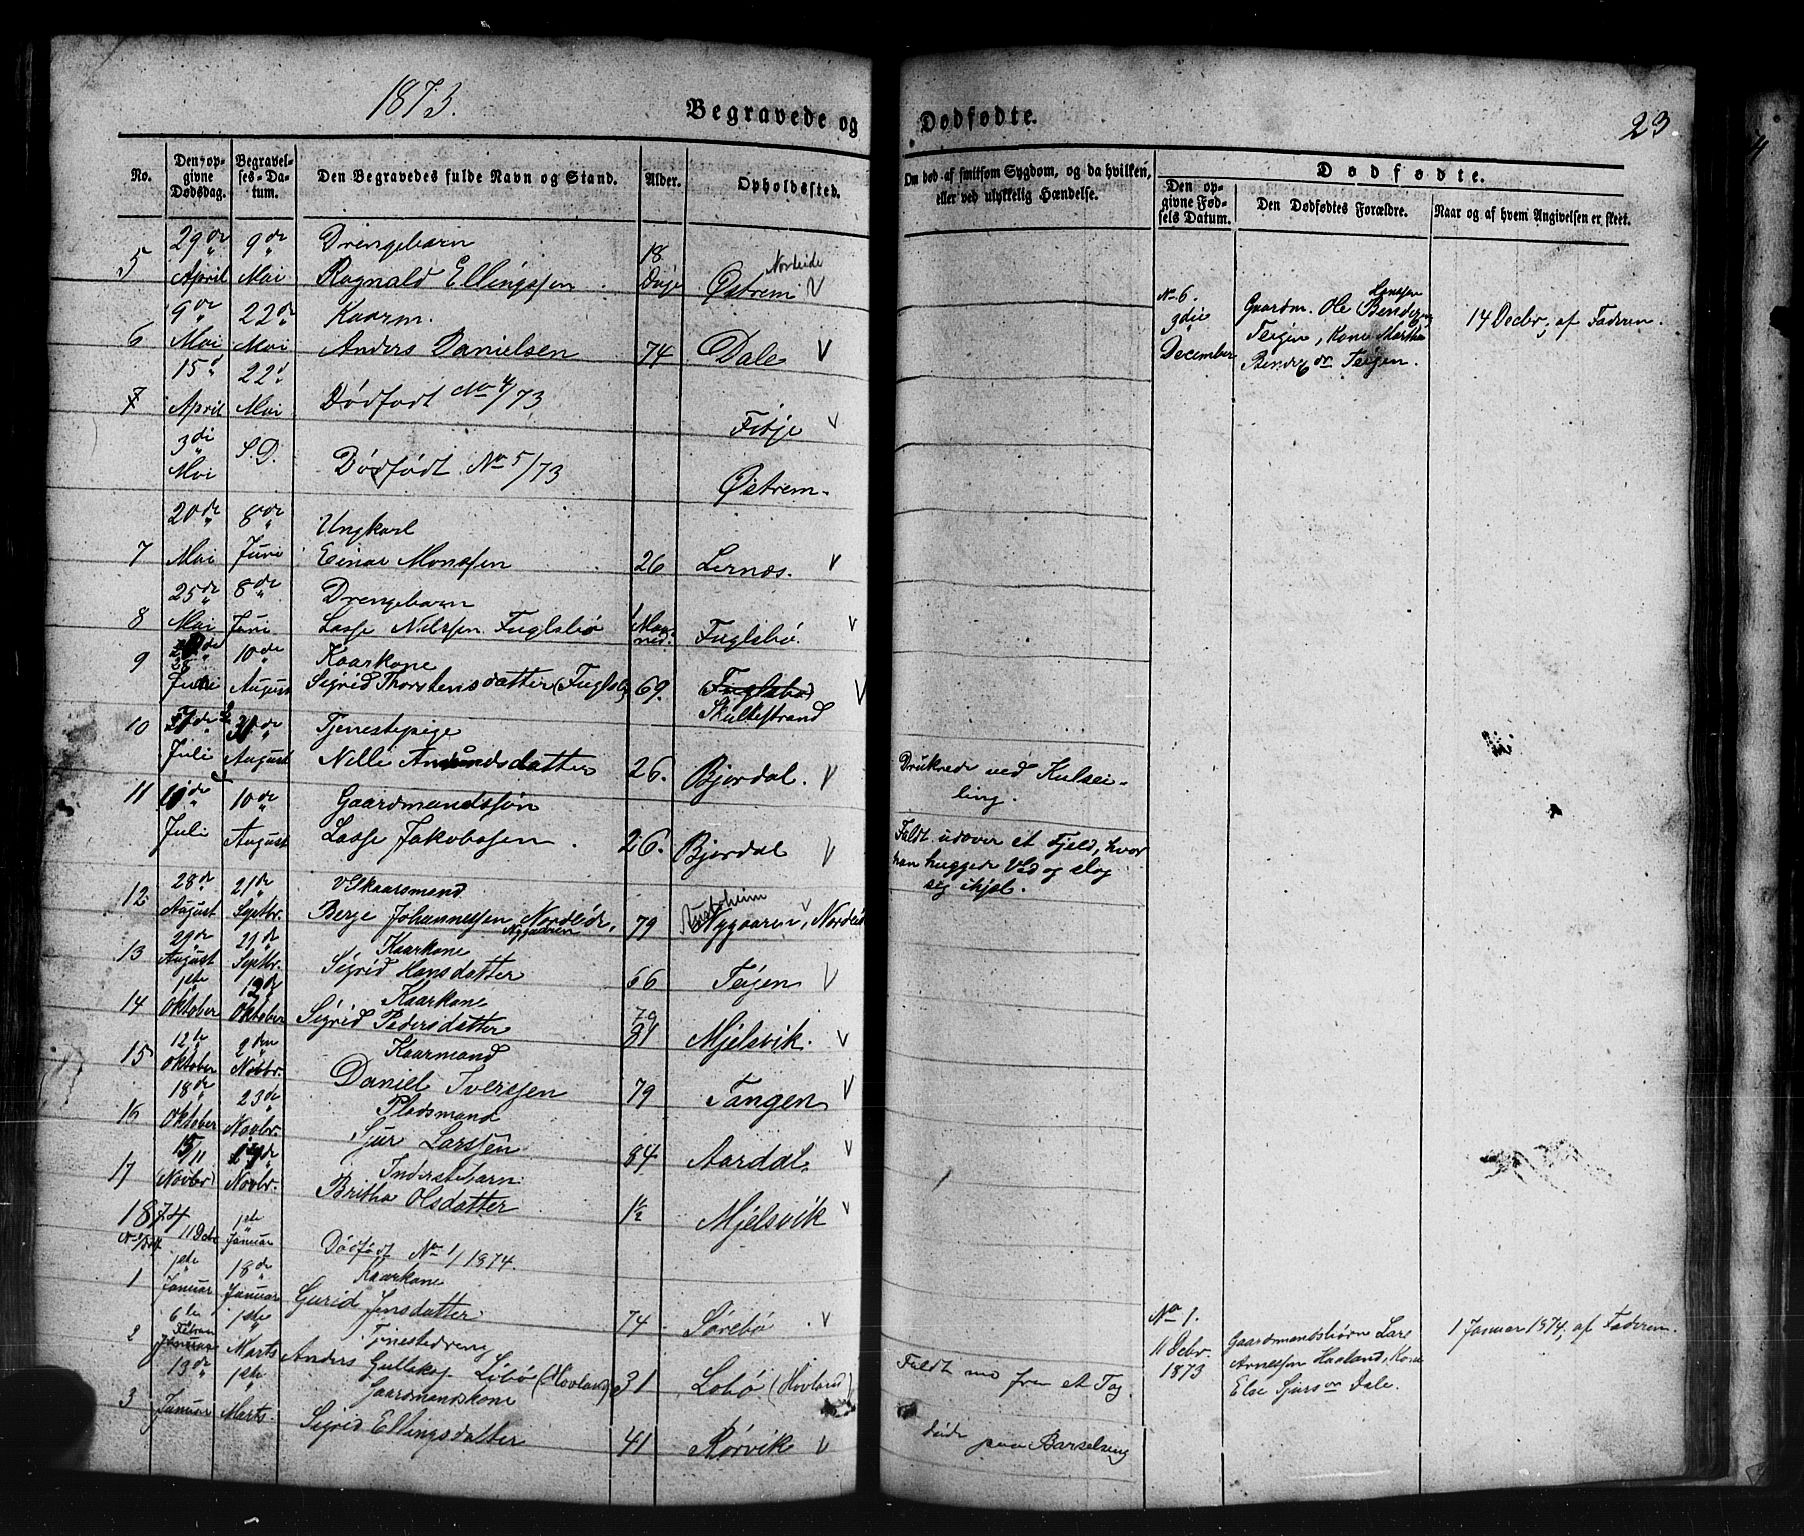 1873.
Begravede og Dødfødte.
23
No.
Den opgivne Dødsdag.
Begravelses-Datum.
Den Begravedes fulde Navn og Stand.
Alder.
Opholdssted.
Om død af smitsom Sygdom, og da hvilken, eller ved ulykkelig Hændelse.
Dødfødte.
Den opgivne Fødsels Datum.
Den Dødfødtes Forældre.
Naar og af hvem Angivelsen er skeet.
5 29de April 9de Mai Drengebarn
Ragnald Ellingssen 18 Dage Østrem Nordeide
6 9de Mai 22de Mai Kaarm.
Anders Danielsen 74 Dale
7 15d April 22d Mai Dødfødt No 4/73 Fibje
3di Mai S.D. Dødfødt No 5/73 Østrem
7 20de Mai 8de Juni Ungkarl
Einar Monssen 26 Lernæs.
8 25de Mai 8de Juni Drengebarn
Lasse Nilssen Fuglsbø 1 Maaned. Fuglsbø.
9 10de August Kaarkone
Sigrid Thorstensdatter (Fuglsb) 69. (Fuglsbø) Skultestrand
10 Juli August Tjenestepige
Nille Amundsdatter 26. Bjordal. Druknede ved Kulseiling.
11 Juli 10de August Gaardmandssøn
Lasse Jakobssen 26. Bjordal Faldt udover et Fjeld, hvor
han huggede Ved og slog
sig ihjel.
12 28de August 21de Septbr. Kaarsmand
Berge Johannessen Nordeide, Nygaaren 79 Nygaaren, Nordeide
13 29de August 21de Septbr. Kaarkone
Sigrid Hansdatter 66 Teigen
14 1ste Oktober 12de Oktober Kaarkone
Sigrid Pedersdatter 79 81 Mjelsvik.
15 12te Oktober 2den Novbr. Kaarmand
Daniel Iverssen 79 Tangen
16 18de Oktober 23de Novbr. Pladsmand
Sjur Larssen 84 Aardal
17 15/11 (Novbr) Novbr. Inderstebarn
Britha Olsdatter 1½ Mjelsvik
1874
11 Dcbr 1ste Januar Dødfødt No 1/1874.
1 1ste Januar 18de Januar Kaarkone
Gurid Jensdatter 74 Sørebø
2 6te Februar 1ste Marts Tjenestedreng
Anders Gullaksen Lobø (Hovland) 31 Lobø (Hovland) Faldt ned fra et Tag
3 13de Januar 1ste Marts. Gaardmandskone
Sigrid Ellingsdatter 41 Rørvik døde paa Barselseng
No 6.
3die December
Gaardm. Ole Hanssen Bende
Teigen, Kone Martha
Teigen.
14 Decbr, af Faderen.
No 1.
11 Dcbr. 1873
Gaardmandsbørn Lars
Arnessen Haaland, Kone
Else Sjursdr Dale.
1 Januar 1874, af Faderen